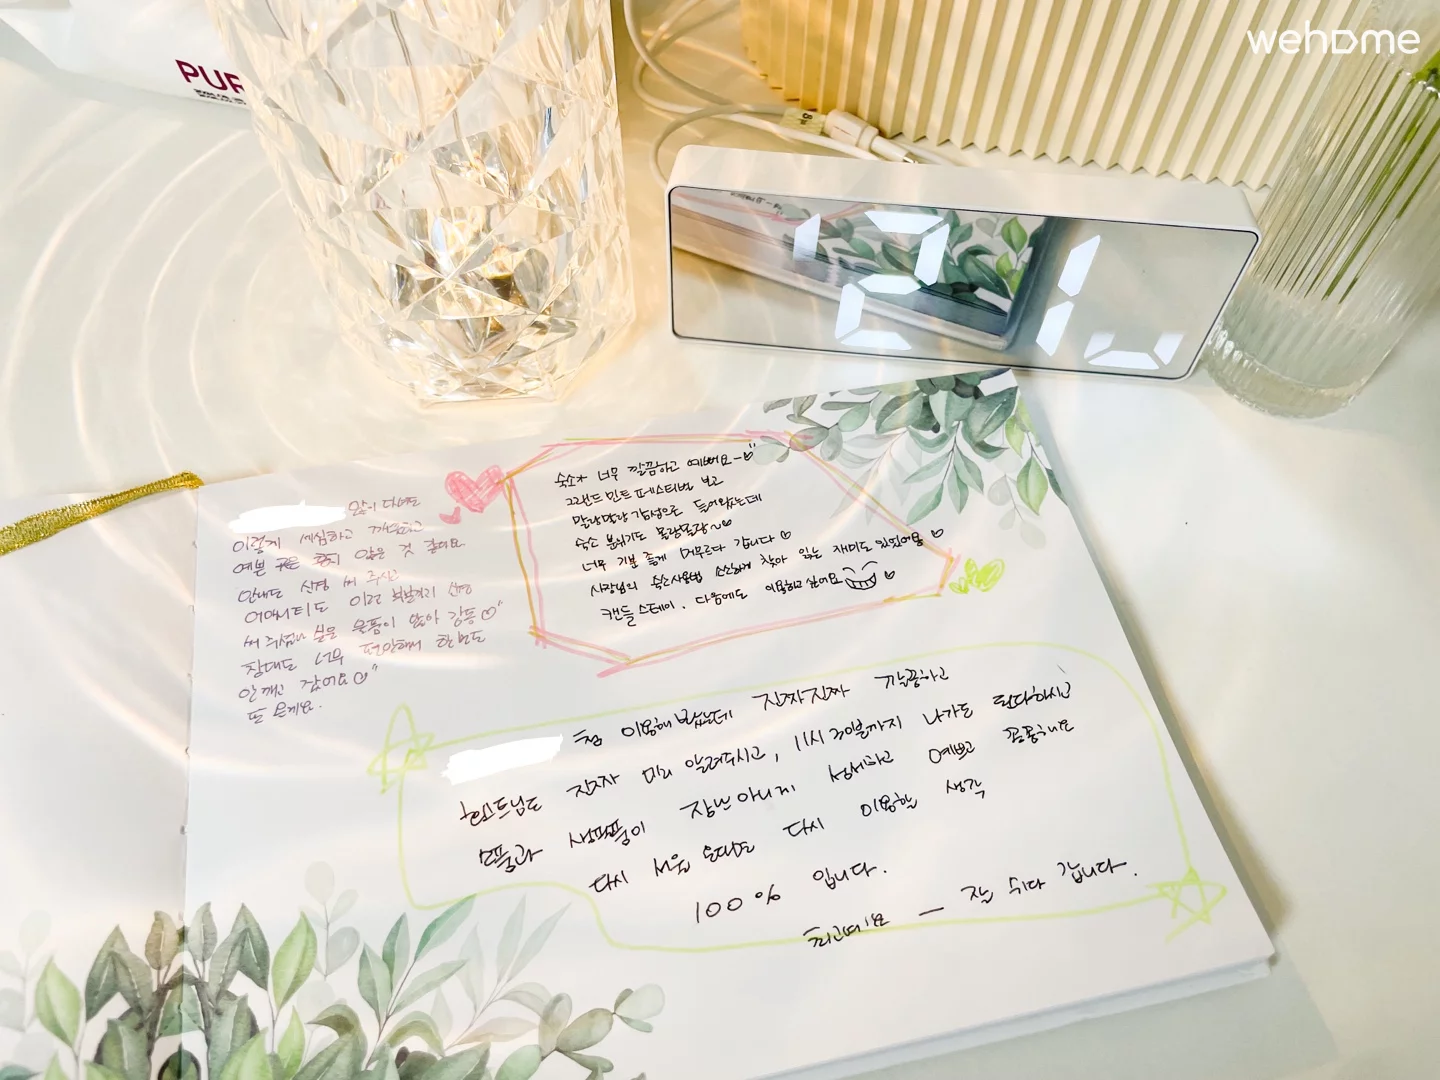 wehome
PUR
많이 다녀도
이렇게 세심하고 깨끗하고
예쁜 곳은 흔치 않은 것 같아요
안내도 신경 써 주시고
어메니티도 이런 신경
써 주셔서 물품이 많아 감동
침대도 너무 편안해서 한번도
안 깨고 잤어요
또 올게요.
숙소가 너무 깔끔하고 예뻐요~
그랜드 민트 페스티벌 보고
말랑말랑 감성으로 들어왔는데
숙소 분위기도 몰랑몰랑~
너무 기분 좋게 머무르다 갑니다
사장님의 숙소사용법 소소하게 찾아 읽는 재미도 있었어용
캔들 스테이. 다음에도 이용하고 싶어요
첨 이용해 봤는데 진짜진짜 깔끔하고
호스트님도 진짜 미리 알려주시고, 11시 나가도 된다하시고
소품과 생필품이 장난아니게 섬세하고 예쁘고 꼼꼼해요
다시 서울 온대도 다시 이용할 생각
100% 입니다.
최고예요 — 잘 쉬다 갑니다.